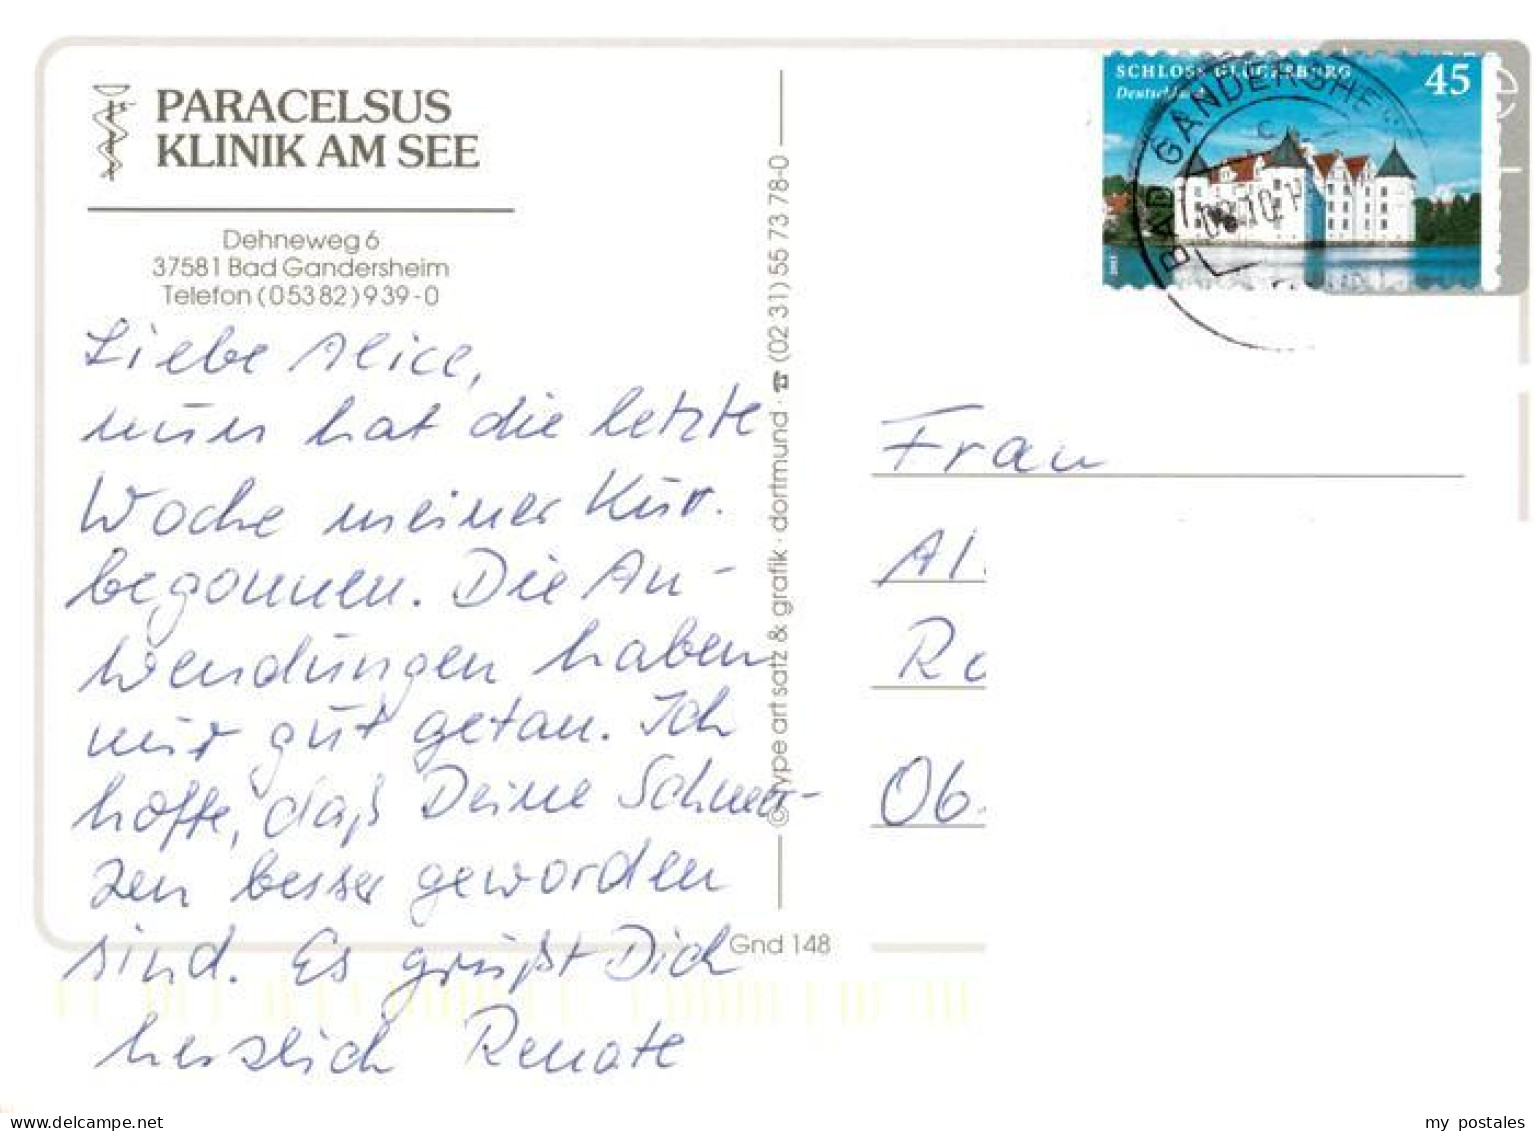 PARACELSUS
KLINIK AM SEE
Dehneweg 6
37581 Bad Gandersheim
Telefon (05382) 939-0
Liebe Alice,
nun hat die letzte
Woche meiner Kur.
begonnen. Die An-
wendungen haben
mir gut getan. Ich
hoffe, daß Deine Schmer-
zen besser geworden
sind. Es grüßt Dich
herzlich Renate
© type art satz & grafik · dortmund · ☎ (02 31) 55 73 78-0
Gnd 148
SCHLOSS GLÜCKSBURG
Deutschland
45
2013
BAD GANDERSHE
Frau
Al.
Ra
Ob.
my postales